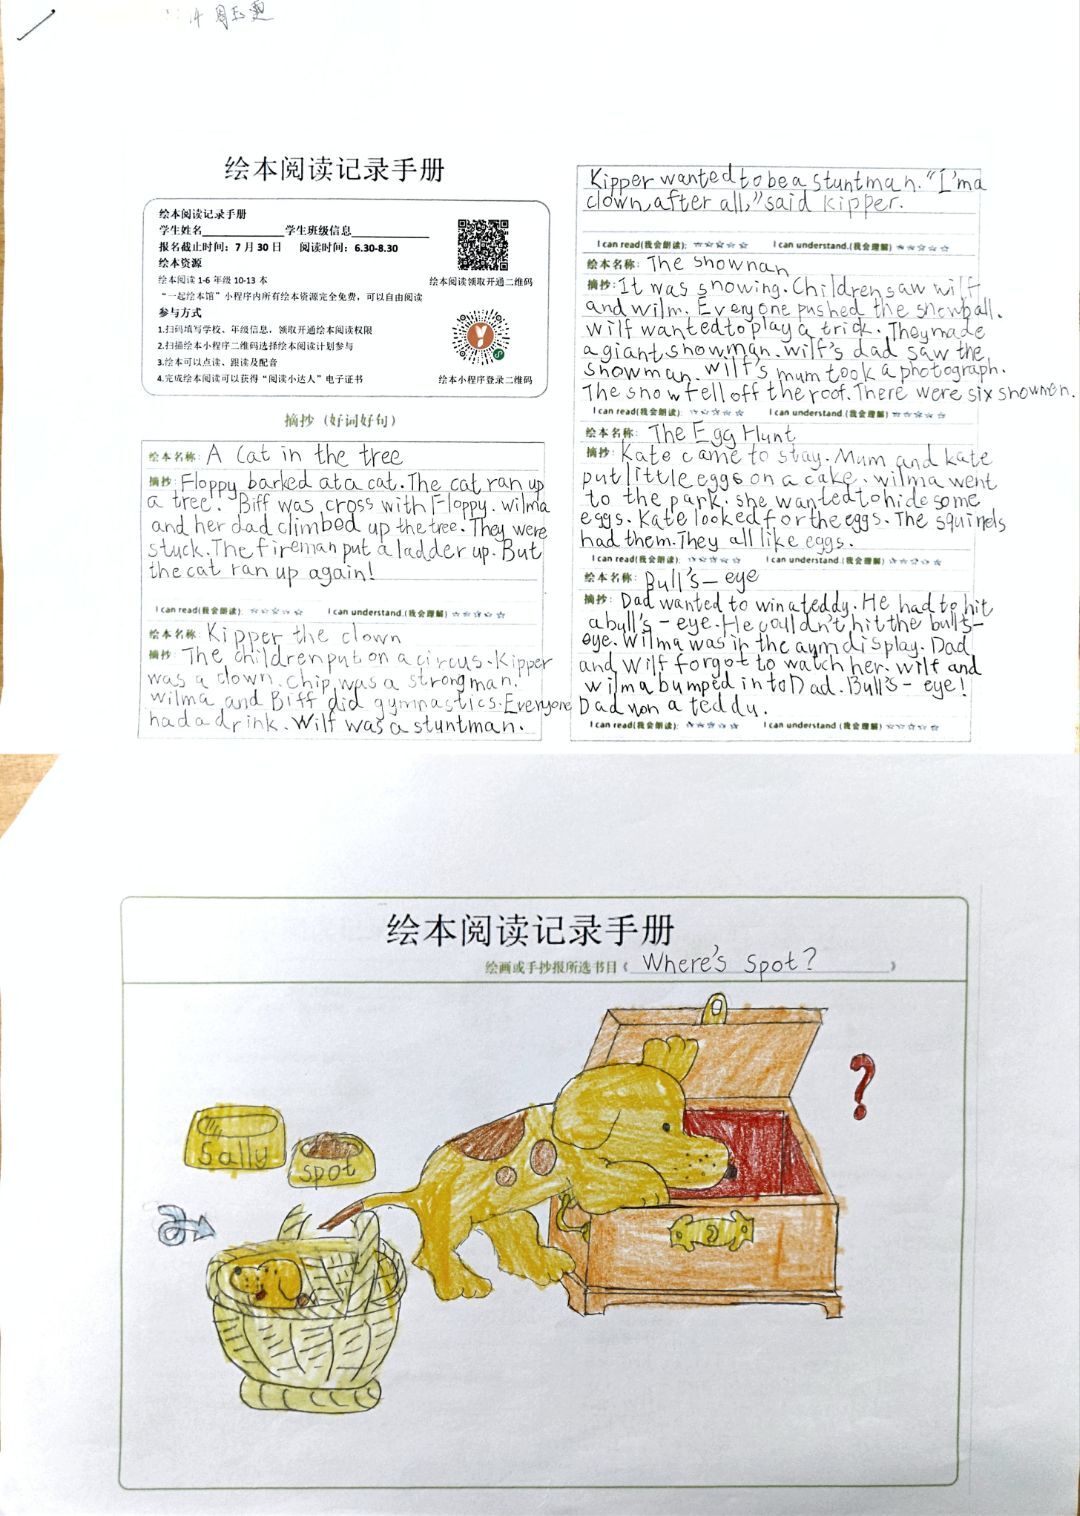 绘本阅读记录手册
绘本阅读记录手册
学生姓名____________学生班级信息____________
报名截止时间：7 月 30 日 阅读时间：6.30-8.30
绘本资源
绘本阅读 1-6 年级 10-13 本
“一起绘本馆”小程序内所有绘本资源完全免费，可以自由阅读
参与方式
1.扫码填写学校、年级信息，领取开通绘本阅读权限
2.扫描绘本小程序二维码选择绘本阅读计划参与
3.绘本可以点读、跟读及配音
4.完成绘本阅读可以获得“阅读小达人”电子证书
绘本阅读领取开通二维码
绘本小程序登录二维码
摘抄（好词好句）
绘本名称: A Cat in the tree
摘抄: Floppy barked at a cat. The cat ran up
a tree. Biff was cross with Floppy. wilma
and her dad climbed up the tree. They were
stuck. The fireman put a ladder up. But
the cat ran up again!
I can read(我会朗读): ☆☆☆☆☆ I can understand.(我会理解) ☆☆☆☆☆
绘本名称: Kipper the clown
摘抄: The children put on a circus. Kipper
was a clown. Chip was a strongman.
wilma and Biff did gymnastics. Everyone
had a drink. Wilf was a stuntman.
Kipper wanted to be a stuntman. “I'm a
clown, after all,” said kipper.
I can read(我会朗读): ☆☆☆☆☆ I can understand.(我会理解) ☆☆☆☆☆
绘本名称: The snownan
摘抄: It was snowing. Children saw wilf
and wilm. Everyone pushed the snowball.
wilf wanted to play a trick. They made
a giant snowman. wilf's dad saw the
snowman. wilf's mum took a photograph.
The snow fell off the roof. There were six snowmen.
I can read(我会朗读): ☆☆☆☆☆ I can understand (我会理解) ☆☆☆☆☆
绘本名称: The Egg Hunt
摘抄: Kate came to stay. Mum and kate
put little eggs on a cake. wilma went
to the park. she wanted to hide some
eggs. Kate looked for the eggs. The squirrels
had them. They all like eggs.
I can read(我会朗读): ☆☆☆☆☆ I can understand.(我会理解) ☆☆☆☆☆
绘本名称: Bull's-eye
摘抄: Dad wanted to win a teddy. He had to hit
a bull's-eye. He couldn't hit the bull's-
eye. Wilma was in the gym display. Dad
and Wilf forgot to watch her. wilf and
wilma bumped in to Dad. Bull's-eye!
Dad won a teddy.
I can read(我会朗读): ☆☆☆☆☆ I can understand (我会理解) ☆☆☆☆☆
绘本阅读记录手册
绘画或手抄报所选书目《 Where's Spot? 》
Sally
spot
?